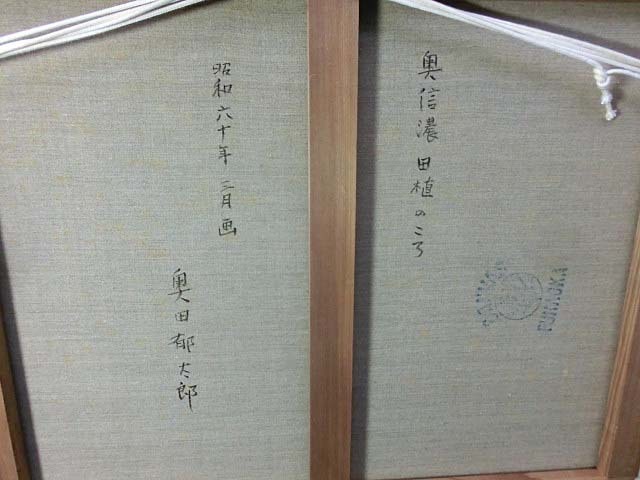 奥信濃 田植のころ
昭和六十年 三月画
奥田郁太郎
FUNAOKA